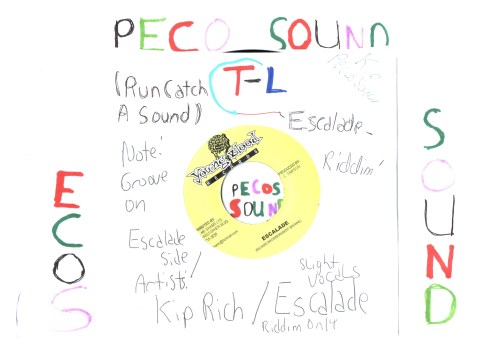 PECO SOUND
(Run Catch
A Sound)
T-L
Escalade-
Riddim'
Note:
Groove
on
Young Blood
RECORDS
PECOS
SOUND
ESCALADE
Escalade
Side/
Artists:
Kip Rich / Escalade
Slight
Vocals
Riddim Only
ECOS
SOUND